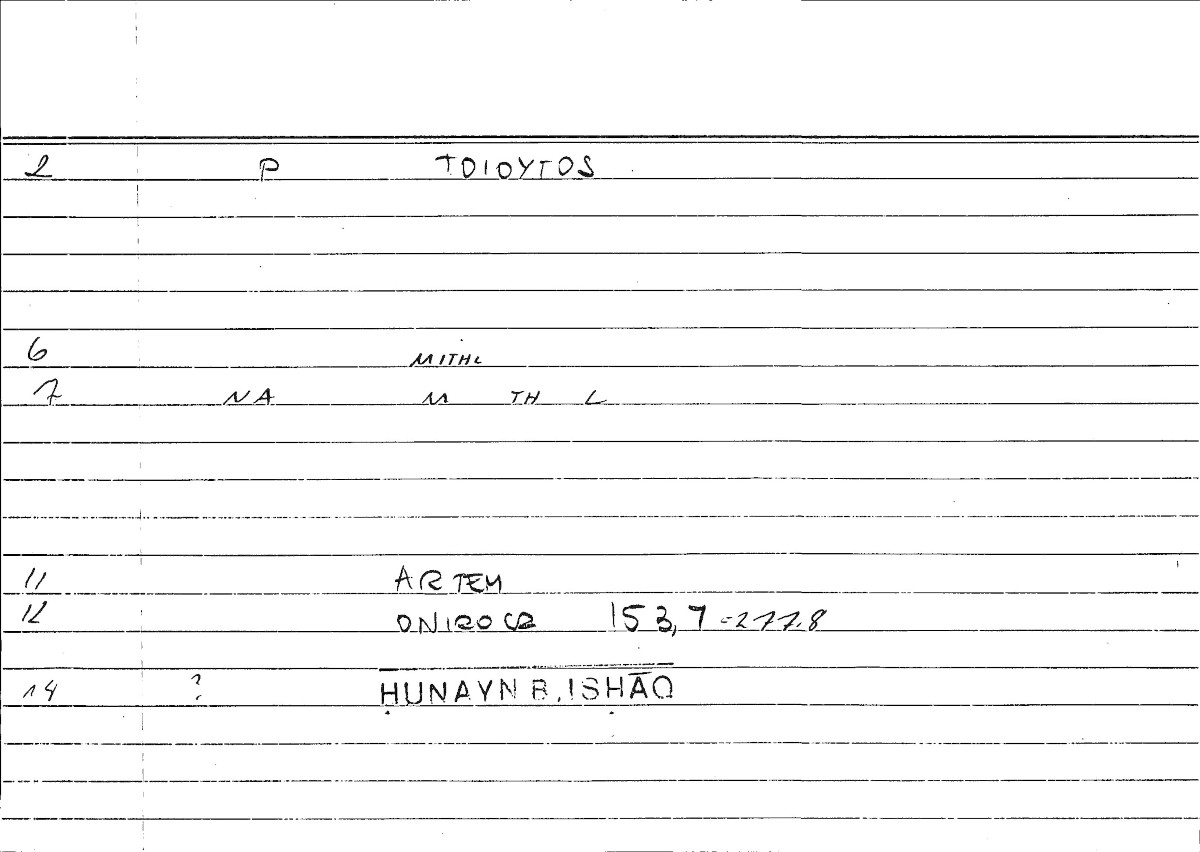 2 P TOIOYTOS
6 MITHL
7 NA M TH L
11 ARTEM
12 ONIROCR 153,7 = 277.8
14 ? ḤUNAYN B. ISḤĀQ